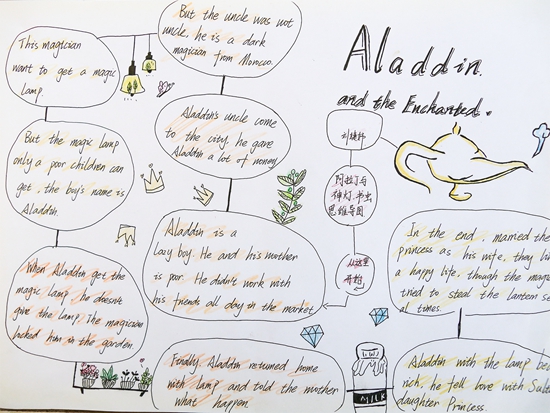 Aladdin.
and the Enchanted.
阿拉丁与
神灯.书虫
思维导图
从这里
开始
Aladdin is a
lazy boy. He and his mother
is poor. He didn't work with
his friends all day in the market
Aladdin's uncle come
to the city, he gave
Aladdin a lot of money
But the uncle was not
uncle, he is a dark
magician from Morocco.
This magician
want to get a magic
lamp.
But the magic lamp
only a poor children can
get, the boy's name is
Aladdin.
When Aladdin get the
magic lamp, he doesn't
give the lamp. The magician
locked him in the garden
Finally, Aladdin returned home
with lamp and told the mother
what happen.
MILK
Aladdin with the lamp
rich, he fell love with
daughter Princess
In the end, married the
princess as his wife, they
a happy life. though the
tried to steal the lantern
al times.